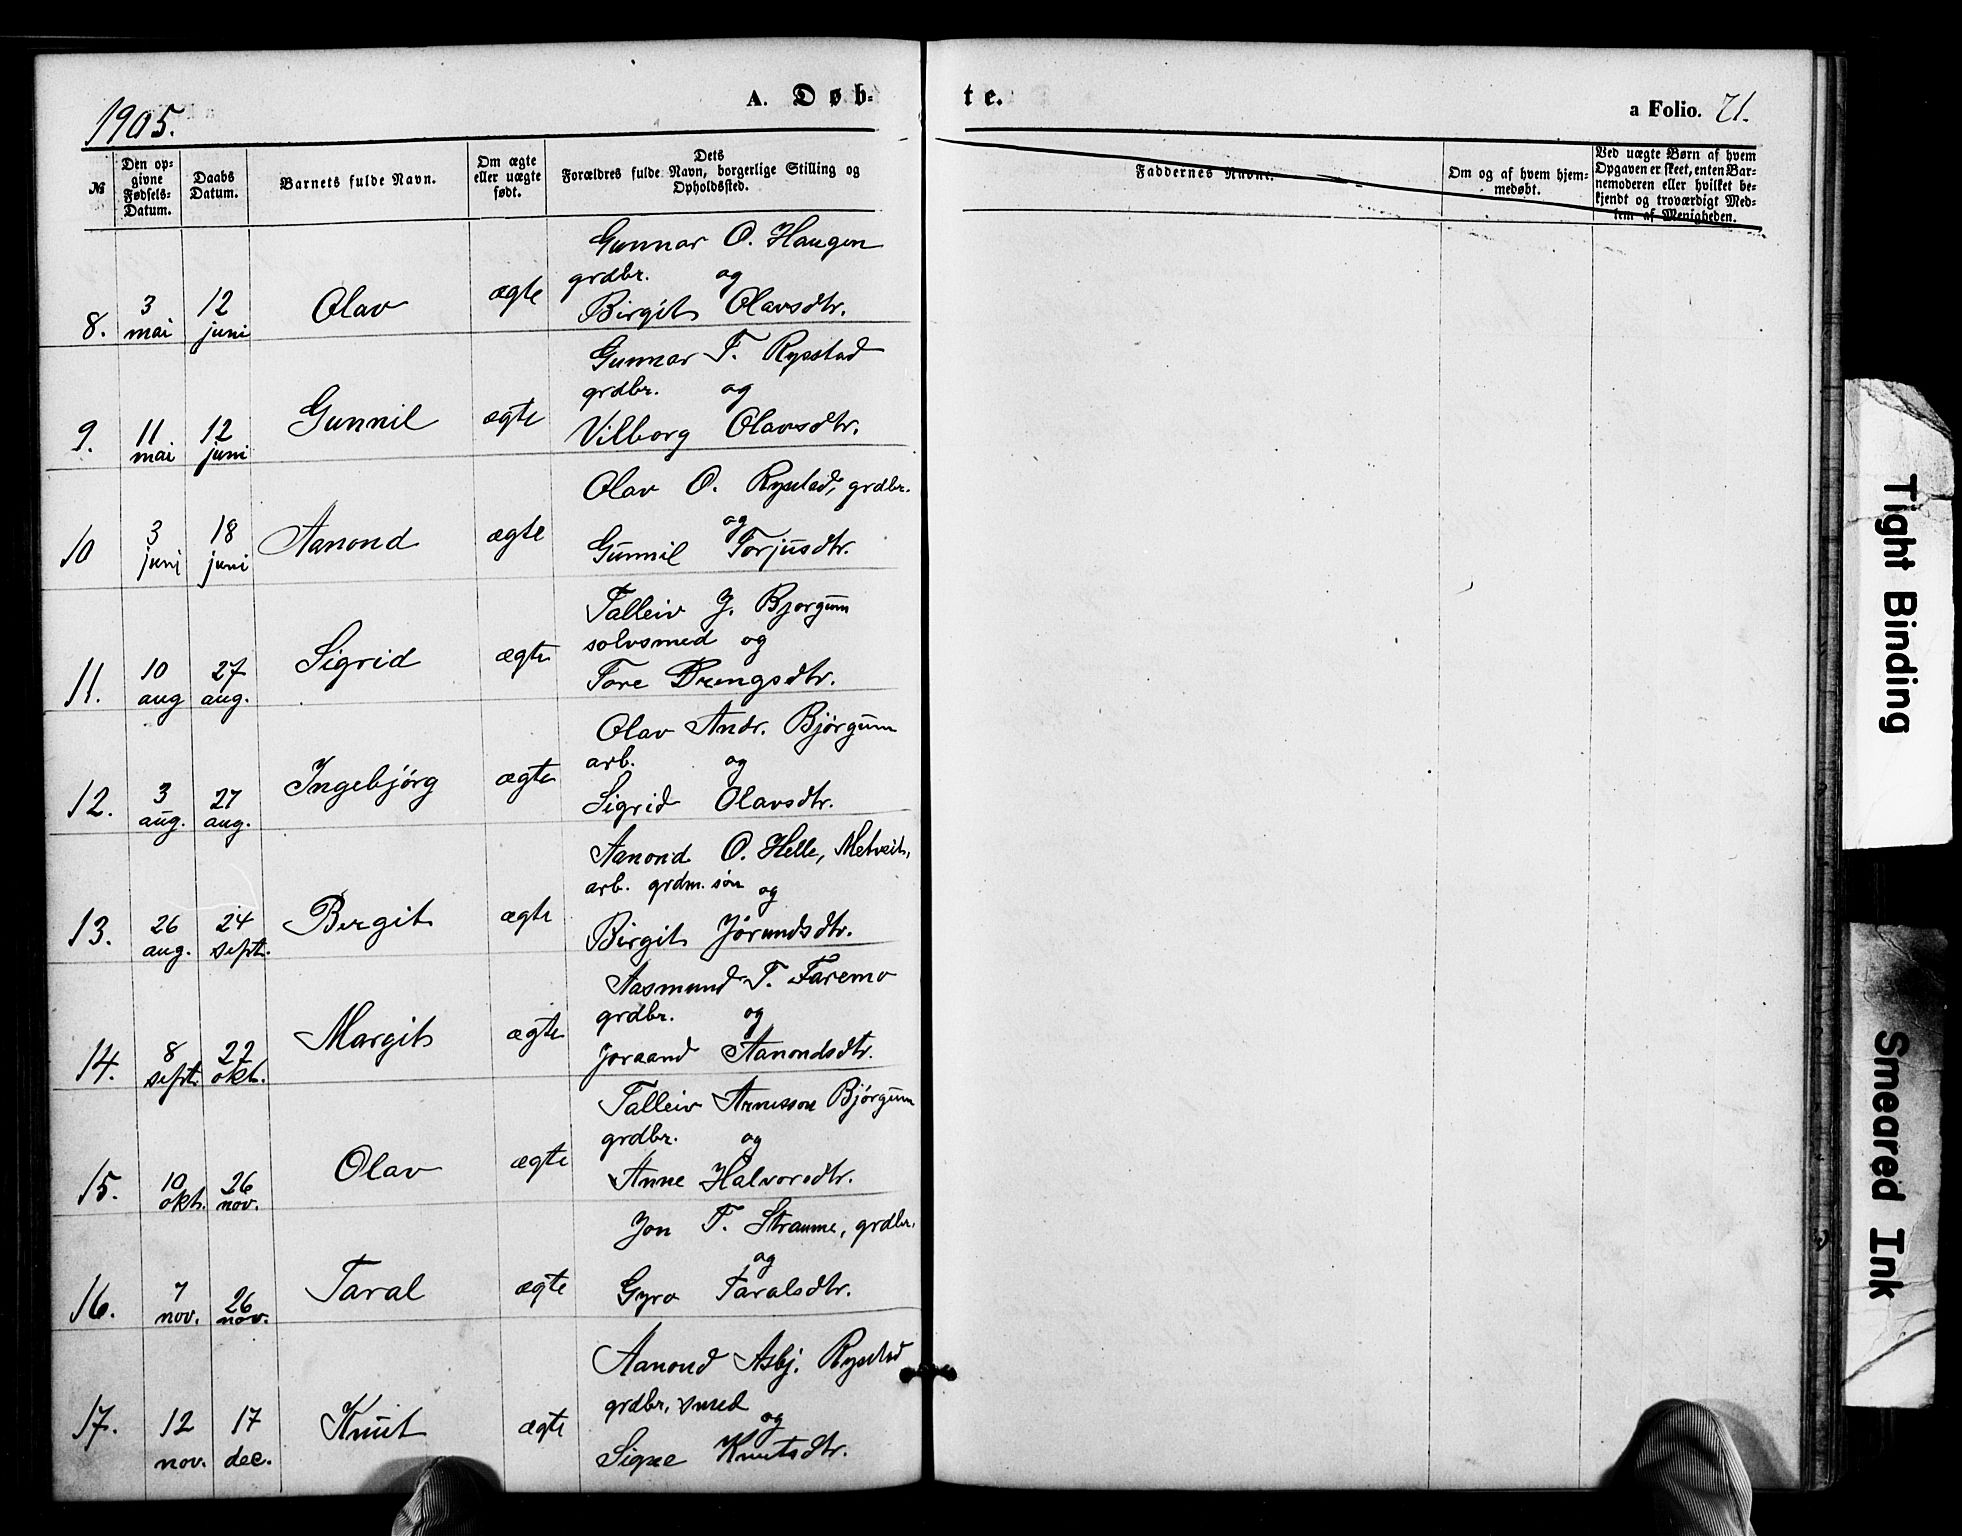 1905.
A. Døb-
te.
a Folio. 71.
№
Den op-
givne
Fødsels-
Datum.
Daabs
Datum.
Barnets fulde Navn.
Om ægte
eller uægte
født.
Dets
Forældres fulde Navn, borgerlige Stilling og
Opholdssted.
Faddernes Navne.
Om og af hvem hjem-
medøbt.
Ved uægte Børn af hvem
Opgaven er skeet, enten Bar-
nemoderen eller hvilket be-
kjendt og troværdigt Med-
lem af Menigheden.
Gunnar O. Haugen
grdbr. og
8. 3 mai 12 juni Olav ægte Birgit Olavsdtr.
Gunnar T. Rysstad
grdbr. og
9. 11 mai 12 juni Gunnil ægte Vilborg Olavsdtr.
Olav O. Rysstad, grdbr.
og
10 3 juni 18 juni Aanond ægte Gunnil Torjusdtr.
Talleiv J. Bjorgum
solvsmed og
11. 10 aug 27 aug. Sigrid ægte Tore Drengsdtr.
Olav Andr. Bjørgum
arb. og
12. 3 aug. 27 aug. Ingebjörg ægte Sigrid Olavsdtr.
Aanond O. Helle, Metveit,
arb. grdm. søn og
13. 26 aug. 24 sept. Bergit ægte Birgit Jørundsdtr.
Aasmund T. Faremo
grdbr. og
14. 8 sept. 22 okt. Margit ægte Joraand Aanondsdtr.
Talleiv Arnesson Bjørgum
grdbr. og
15. 10 okt. 26 nov. Olav ægte Anne Halvorsdtr.
Jon T. Straume, grdbr.
og
16. 7 nov. 26 nov. Taral ægte Gyro Taralsdtr.
Aanond Asbj. Rysstad
grdbr, smed
og
17. 12 nov. 17 dec. Knut ægte Signe Knutsdtr.
Tight Binding
Smeared Ink